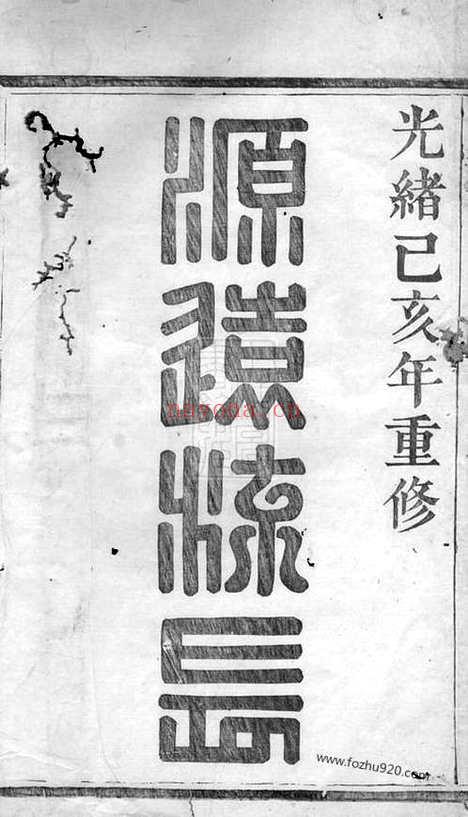 光緒己亥年重修
源遠流長
nayona.cn
www.fozhu920.com